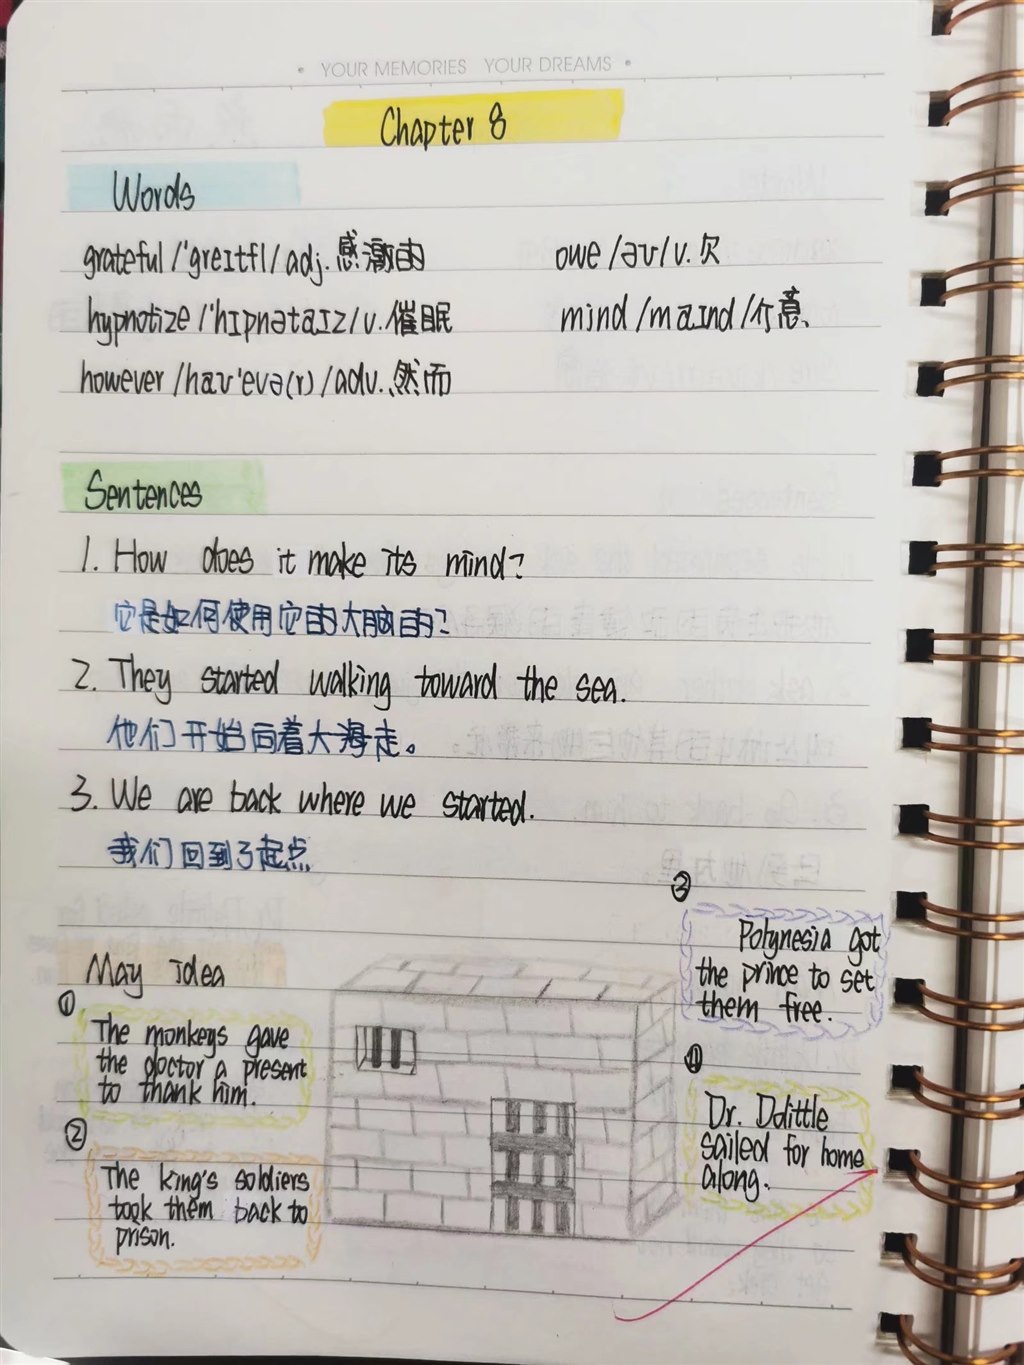 • YOUR MEMORIES YOUR DREAMS •
Chapter 8
Words
grateful /'greɪtfl/ adj. 感激的
owe /əʊ/ v. 欠
hypnotize /'hɪpnətaɪz/ v. 催眠
mind /maɪnd/ 介意
however /haʊ'evə(r)/ adv. 然而
Sentences
1. How does it make its mind?
它是如何使用它的大脑的?
2. They started walking toward the sea.
他们开始向着大海走。
3. We are back where we started.
我们回到了起点
May Idea
①
The monkeys gave
the doctor a present
to thank him.
②
The king's soldiers
took them back to
prison.
③
Polynesia got
the prince to set
them free.
④
Dr. Dolittle
sailed for home
along.